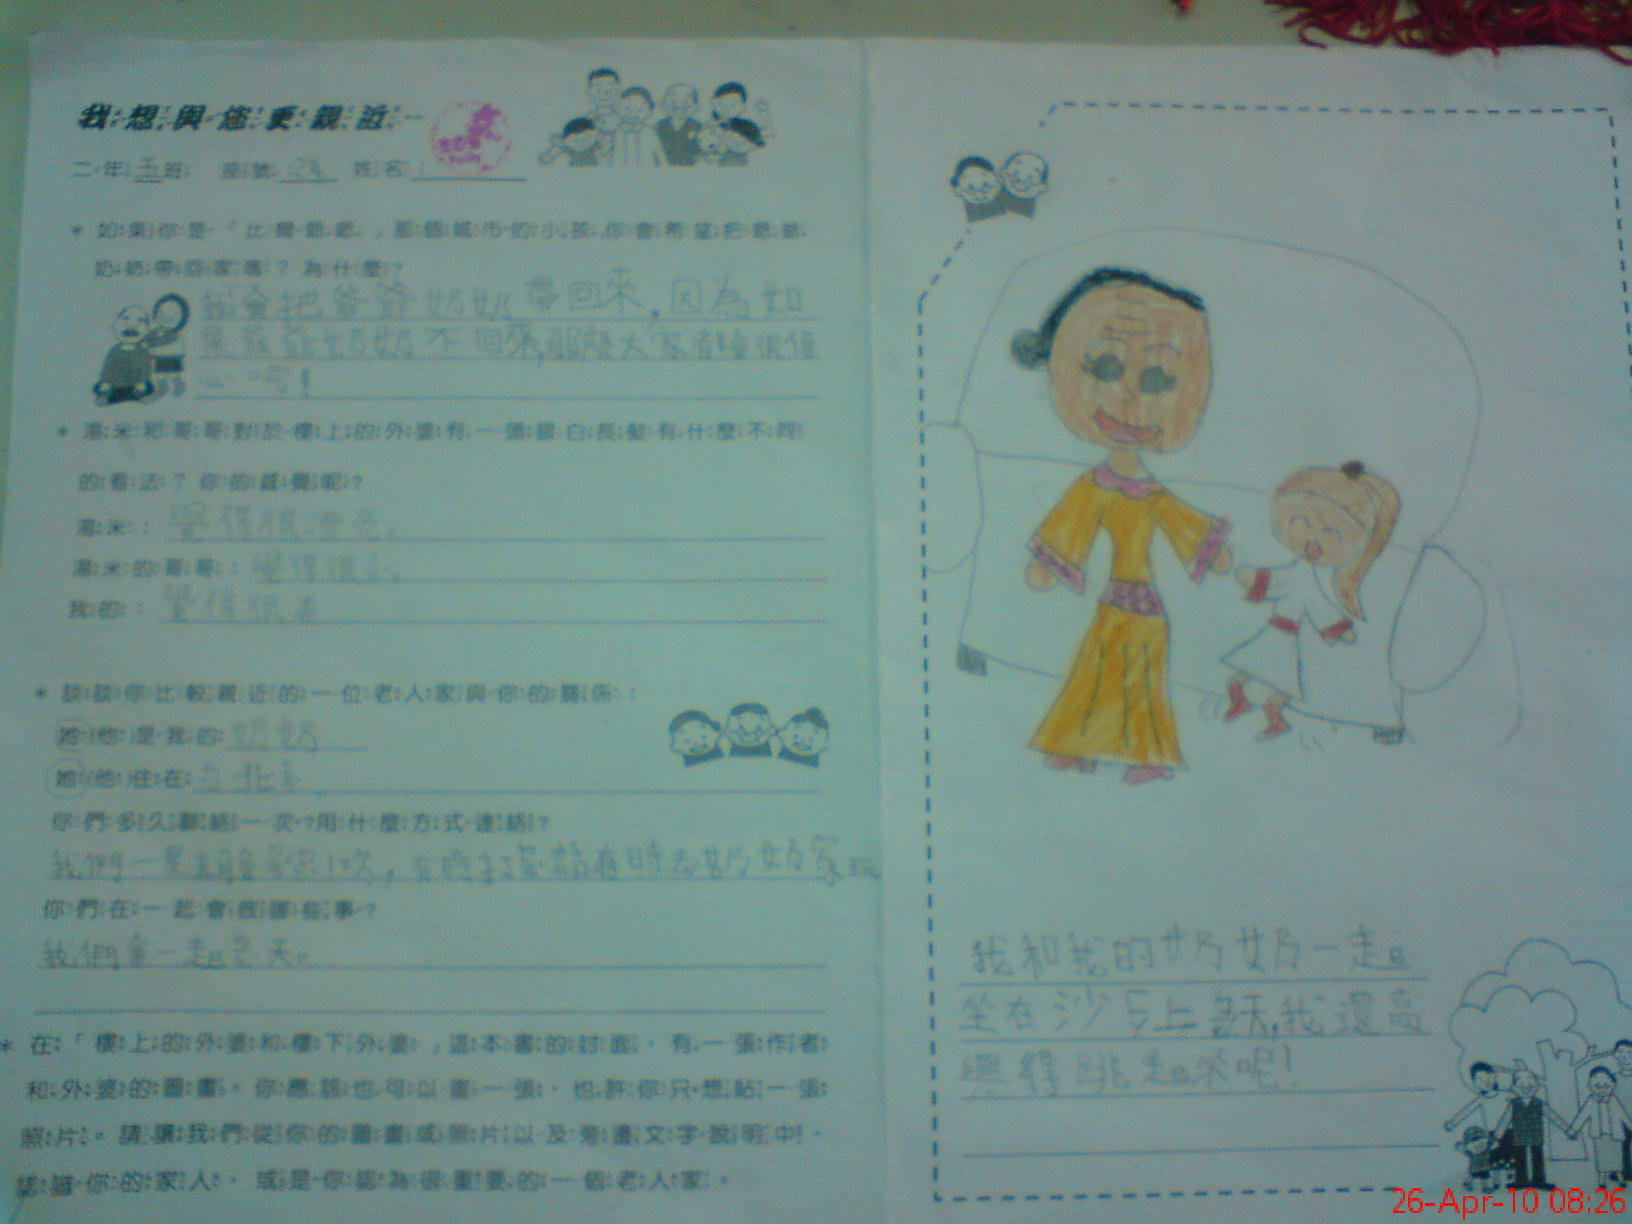 我想與您更親近
二年五班 座號：28 姓名：
* 如果你是「比爾爺爺」那個城市的小孩，你會希望把爺爺
奶奶帶回家嗎？為什麼？
我會把爺爺奶奶帶回來，因為如
果爺爺奶奶不回來，那麼大家都會很傷
心唷！
* 湯米和哥哥對於樓上的外婆有一頭銀白長髮有什麼不同
的看法？你的感覺呢？
湯米：覺得很漂亮。
湯米的哥哥：覺得很
我的：覺得很
* 談談你比較親近的一位老人家與你的關係：
她(他)是我的：奶奶
她(他)住在：台北
你們多久聯絡一次？用什麼方式連絡？
我們一星期會 1次，有時打電話有時去奶奶家玩
你們在一起會做哪些事？
我們會一起聊天。
* 在「樓上的外婆和樓下外婆」這本書的封面，有一張作者
和外婆的圖畫。你應該也可以畫一張，也許你只想貼一張
照片。請讓我們從你的圖畫或照片以及旁邊文字說明中，
認識你的家人，或是你認為很重要的一個老人家。
我和我的奶奶一起
坐在沙ㄈ上聊天，我還高
興得跳起來呢！
26-Apr-10 08:26